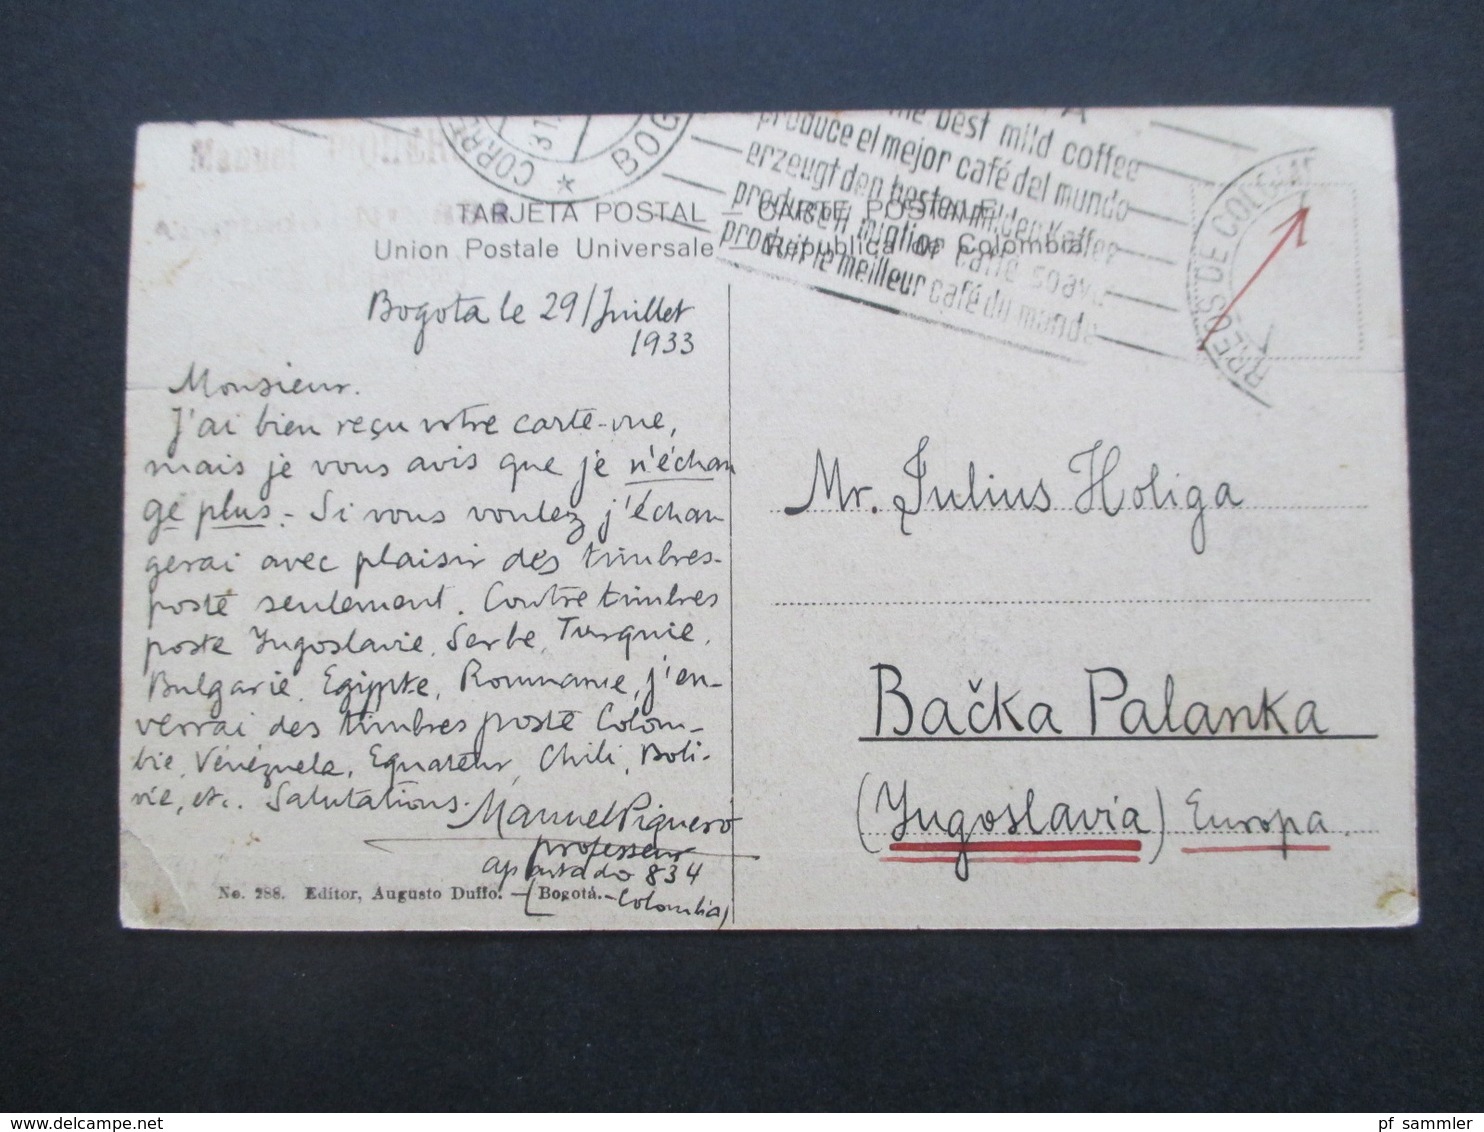 Manuel
CORRE
31.
BOG
the best mild coffee
produce el mejor café del mundo
erzeugt den besten milden Kaffee
produce il miglior caffé soave
produit le meilleur café du monde
RREOS DE COLOMBIA
TARJETA POSTAL — CARTE POSTALE
Union Postale Universale — Republica de Colombia
Bogota le 29/Juillet
1933
Monsieur.
J'ai bien reçu votre carte-vue,
mais je vous avis que je n'échan
ge plus. - Si vous voulez j'échan
gerai avec plaisir des timbres-
poste seulement. Contre timbres
poste Yugoslavie, Serbe, Turquie,
Bulgarie, Egipte, Roumanie, j'en-
verrai des timbres poste Colom-
bie, Vénézuela, Equateur, Chili, Boli-
vie, etc. Salutations.
Manuel Piquero
professeur
apartado 834
(Bogotá.-Colombia)
No. 288. Editor, Augusto Duffo. — Bogotá.
Mr. Julius Holiga
Bačka Palanka
(Yugoslavia) Europa.
pf sammler